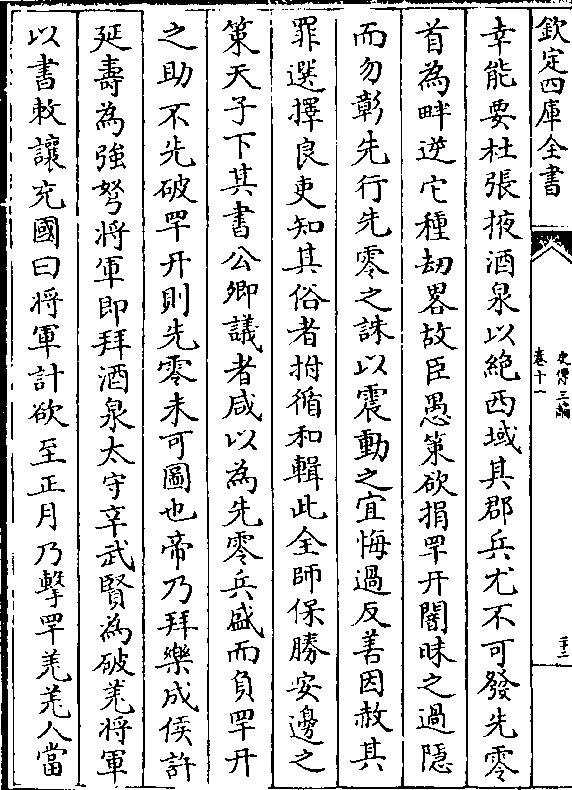 欽定四庫全書
史傳三編
卷十一
二十三
幸能要杜張掖酒泉以絕西域其郡兵尤不可發先零
首為畔逆它種劫畧故臣愚策欲捐罕幵闇昧之過隱
而勿彰先行先零之誅以震動之宜悔過反善因赦其
罪選擇良吏知其俗者拊循和輯此全師保勝安邊之
策天子下其書公卿議者咸以為先零兵盛而負罕幵
之助不先破罕幵則先零未可圖也帝乃拜樂成侯許
延壽為強弩將軍即拜酒泉太守辛武賢為破羌將軍
以書敕讓充國曰將軍計欲至正月乃擊罕羌羌人當